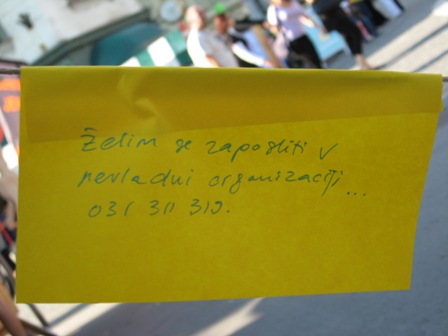 Želim se zaposliti v
nevladni organizaciji...
031 311 310.